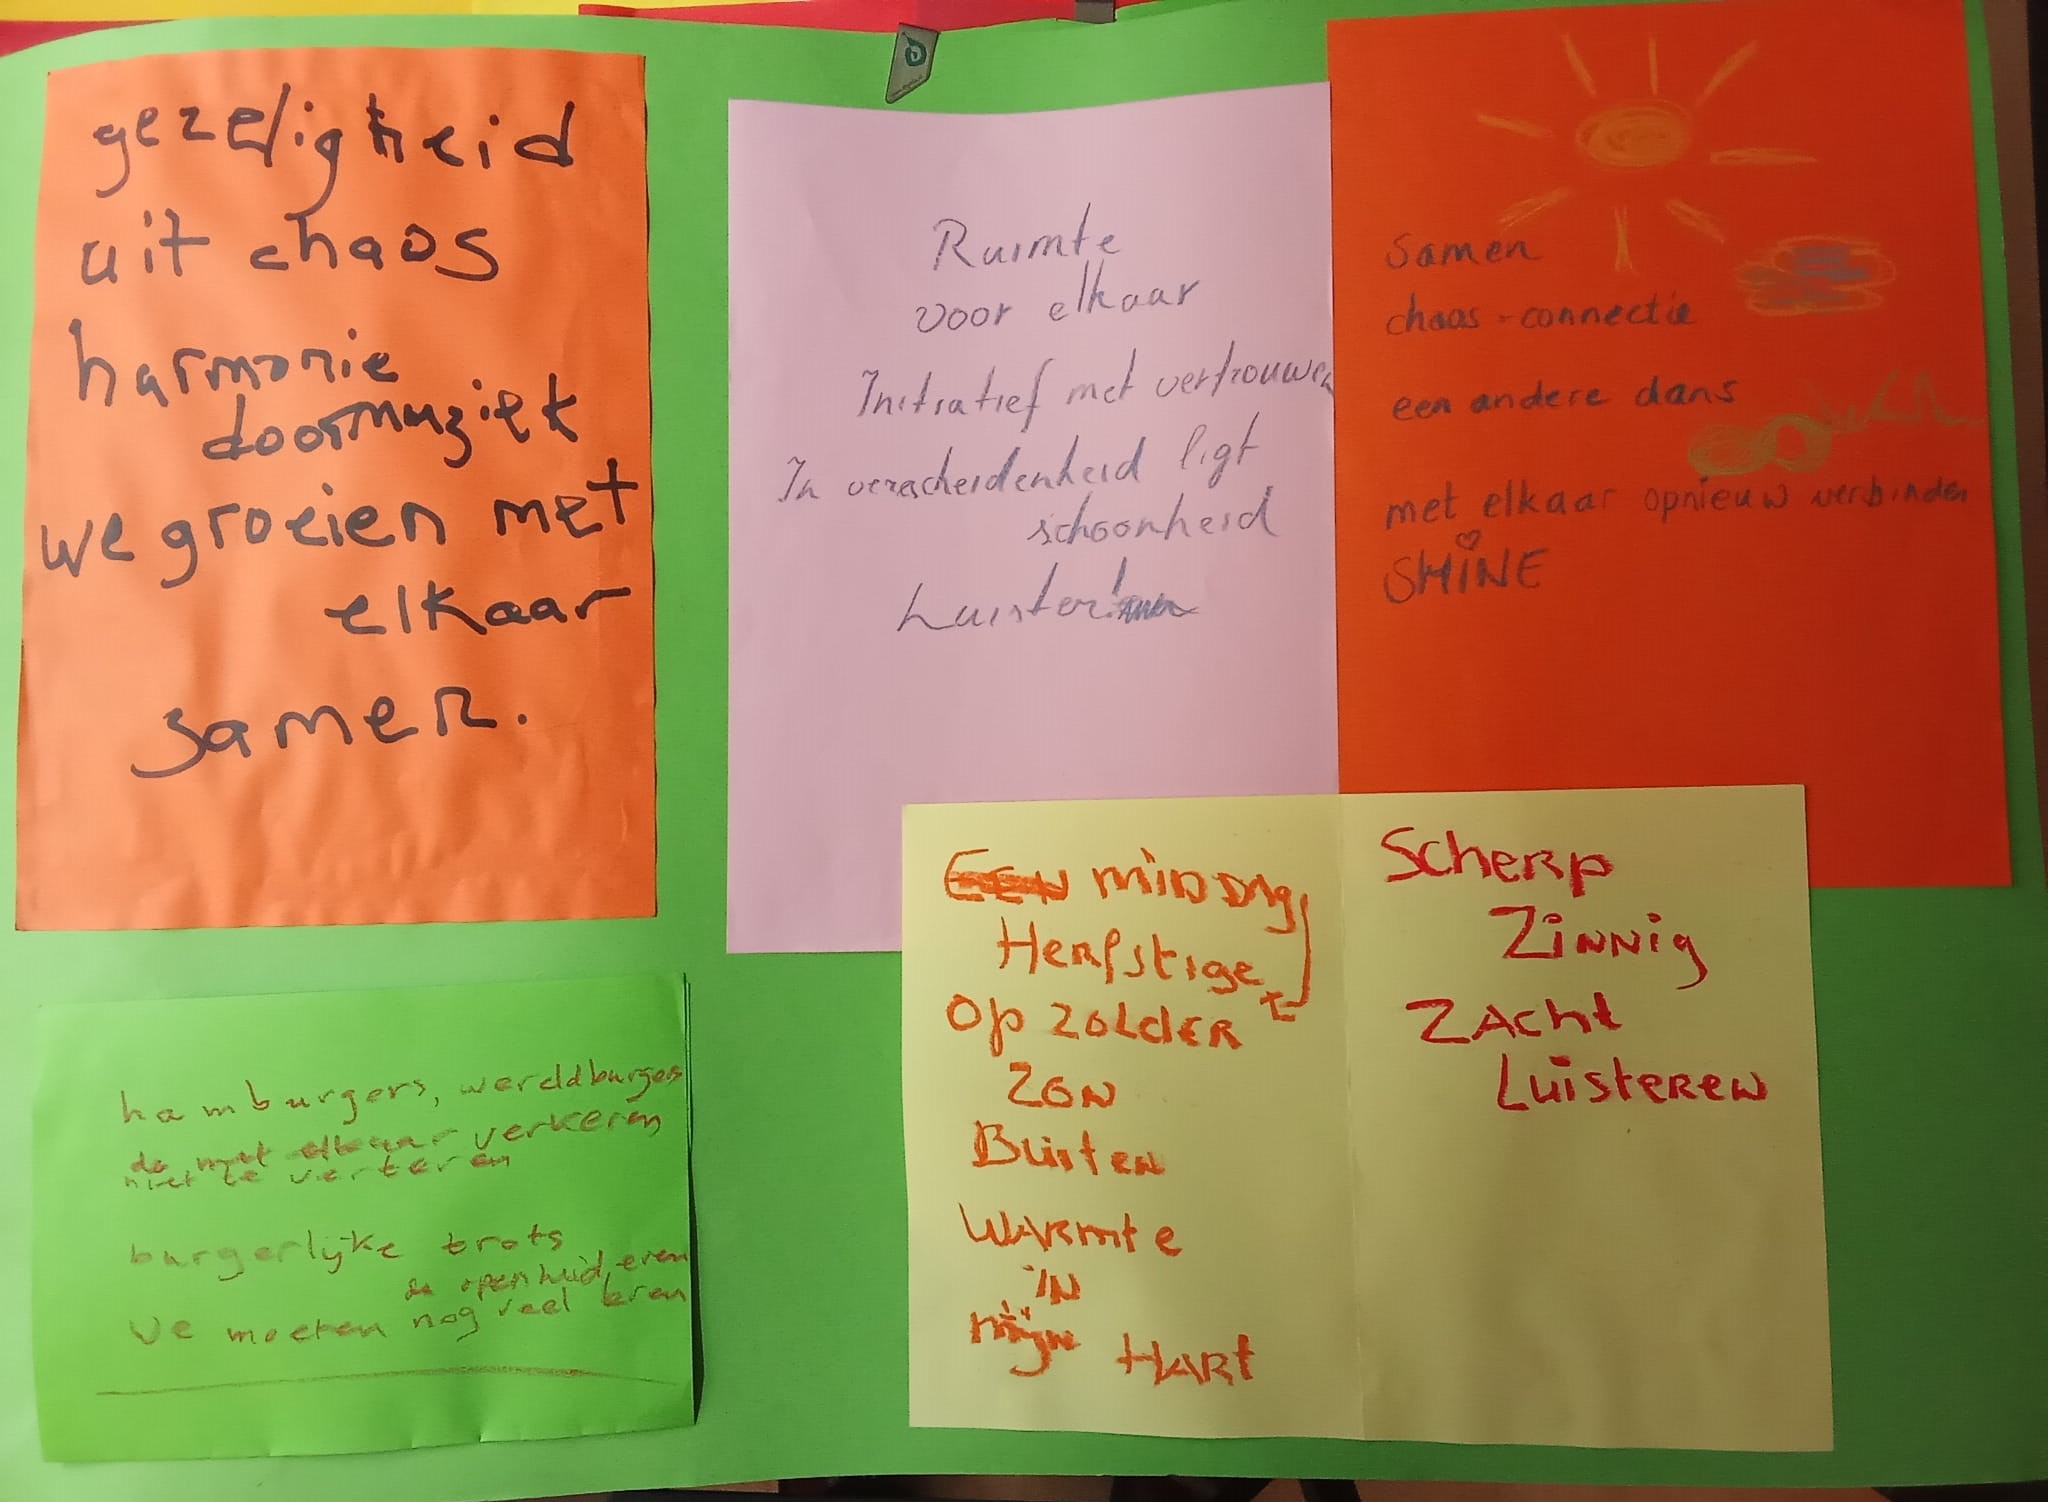 gezeligheid
uit chaos
harmonie
door muziek
we groeien met
elkaar
samen.
Ruimte
voor elkaar
Initiatief met vertrouwen
In verscheidenheid ligt
schoonheid
Luister
samen
chaos - connectie
een andere dans
met elkaar opnieuw verbinden
SHINE
hamburgers, wereldburgers
elkaar verkeren
niet te verteren
burgerlijke trots
openhuid, eren
we moeten nog veel leren
Een middag
Herfstige
Op zolder
Zon
Buiten
Warmte
in
mijn Hart
Scherp
Zinnig
Zacht
Luisteren